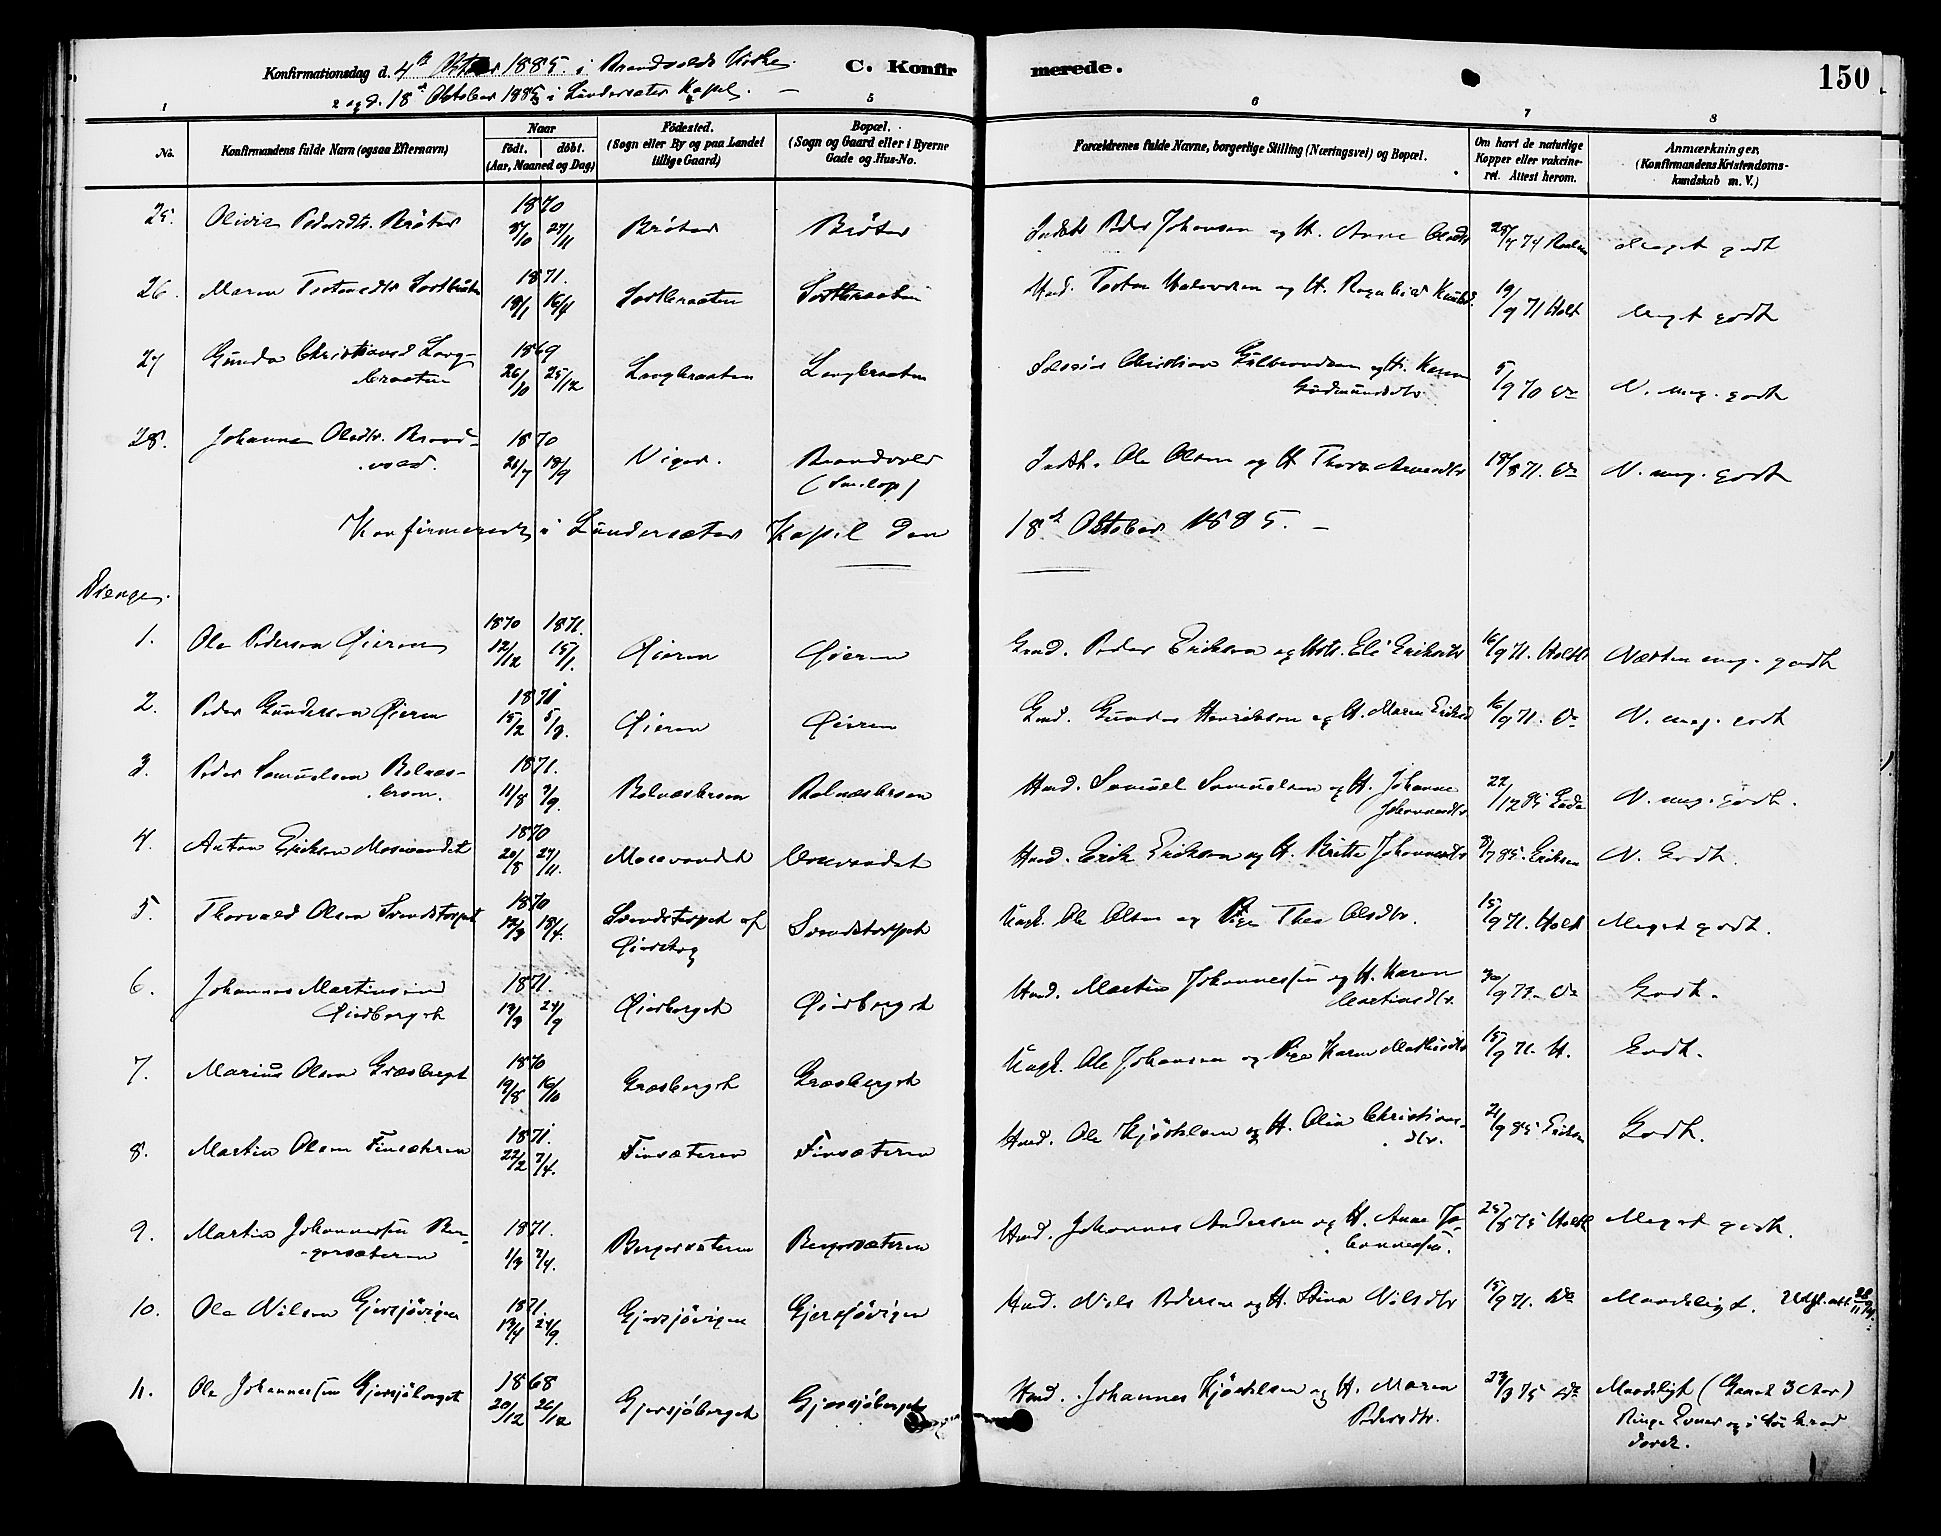 Konfirmationsdag d. 4de Oktober 1885 i Brandvolds Kirke. C. Konfirmerede. 150
og d. 18de Oktober 1885 i Lundersæter Kapel. —
1 2 3 5 6 7 8
No. Konfirmandens fulde Navn (ogsaa Efternavn) Naar födt. döbt. (Aar, Maaned og Dag) Födested. (Sogn eller By og paa Landet tillige Gaard) Bopæl. (Sogn og Gaard eller i Byerne Gade og Hus-No. Forældrenes fulde Navne, borgerlige Stilling (Næringsvei) og Bopæl. Om havt de naturlige Kopper eller vakcineret. Attest herom. Anmærkninger, (Konfirmandens Kristendomskundskab m. V.)
25. Olivia Pedersdtr. Bröter 1870 27/11 Bröter Bröter Peder Johansen og H. Anne 74 Meget godt
26. Maren Sortbraaten 1871. 18/1 16/4 Sortbraaten Sortbraaten Hmd. Halvorsen og H. Ragnhild 19/9 71 Holt Meget godt
27 Gunda Christiansd Langbraaten 1869 26/10 25/12 Langbraaten Langbraaten Christian Gulbrandsen og H. Karen Gudmundsdtr 5/9 70 Do N. meg. godt
28. Johanne Olsdtr. Brandvold. 1870 18/9 Viger. Brandvold Indst. Ole Olsen og H Thora 18/8 71. Do N. meg. godt
Konfirmerede i Lundersæter Kapel den 18de Oktober 1885. —
Drenge.
1. Ole Pedersen Öieren 1870 12/12 1871. 15/1. Öieren Öieren Gmd. Peder Eriksen og Hstr. Eli Eriksdtr 16/9 71. Holdt Næsten meg. godt
2. Peder Gundersen Öieren 1871 15/2 5/3. Öieren Öieren Gmd. Gunder Henriksen og H. Maren Eriksd 16/9 71. Do N. meg. godt
3. Peder Samuelsen Rolnæsbersen. 1871. 11/8 Rolnæsbersen Rolnæsbersen Hmd. Samuel Samuelsen og H. Johanne Johannesdtr 22/12 85 N. meg. godt.
4. Anton Eriksen Mosevandet 1870 20/8 27/11. Mosevandet Hmd. Erik Eriksen og H. Britte Johannesdtr 85. Eriksen N. Godt.
5. Thorvald Olsen Svendstorpet 1870 18/4. Svendstorpet af Svendstorpet Ungk. Ole Olsen og Pige Thea Olsdtr. 15/9 71. Holdt Meget godt.
6. Johannes Martinsen Öierberget 1871. 24/9 Öierberget Öierberget Hmd. Martin Johannessen og H. Karen Martinsdtr. Do Godt.
7. Marius Olsen Græsberget 1870 19/8 16/10 Græsberget Græsberget Ungk. Ole Johansen og Pige Karen Mathisdtr 15/9 71. H. Godt.
8. Martin Olsen Finsæteren 1871. 22/2 7/4. Finsæteren Finsæteren Hmd. Ole Kjöstelsen og H. Olia Christiansdtr. 21/9 85 Eriksen Godt.
9. Martin Johannessen Bergersæteren 1871. 1/3 7/4. Bergersæteren Bergersæteren Hmd. Johannes Andersen og H. Anne Johannessen. 25/8 75 Holdt Meget godt.
10. Ole Nilsen Gjersjövigen 1871. 13/4 24/9. Gjersjövigen Gjersjövigen Hmd. Niels Pedersen og H. Stina Nilsdtr 15/9 71. Do Maadeligt. Utfl. att 28/11
11. Ole Johannessen Gjersjöberget 1868 20/12 26/12 Gjersjöberget Gjersjöberget Hmd. Johannes Kjöstelsen og H. Maren Pedersdtr. 75 Do Maadeligt (Gaaet 3 Aar) Ringe Evner og i